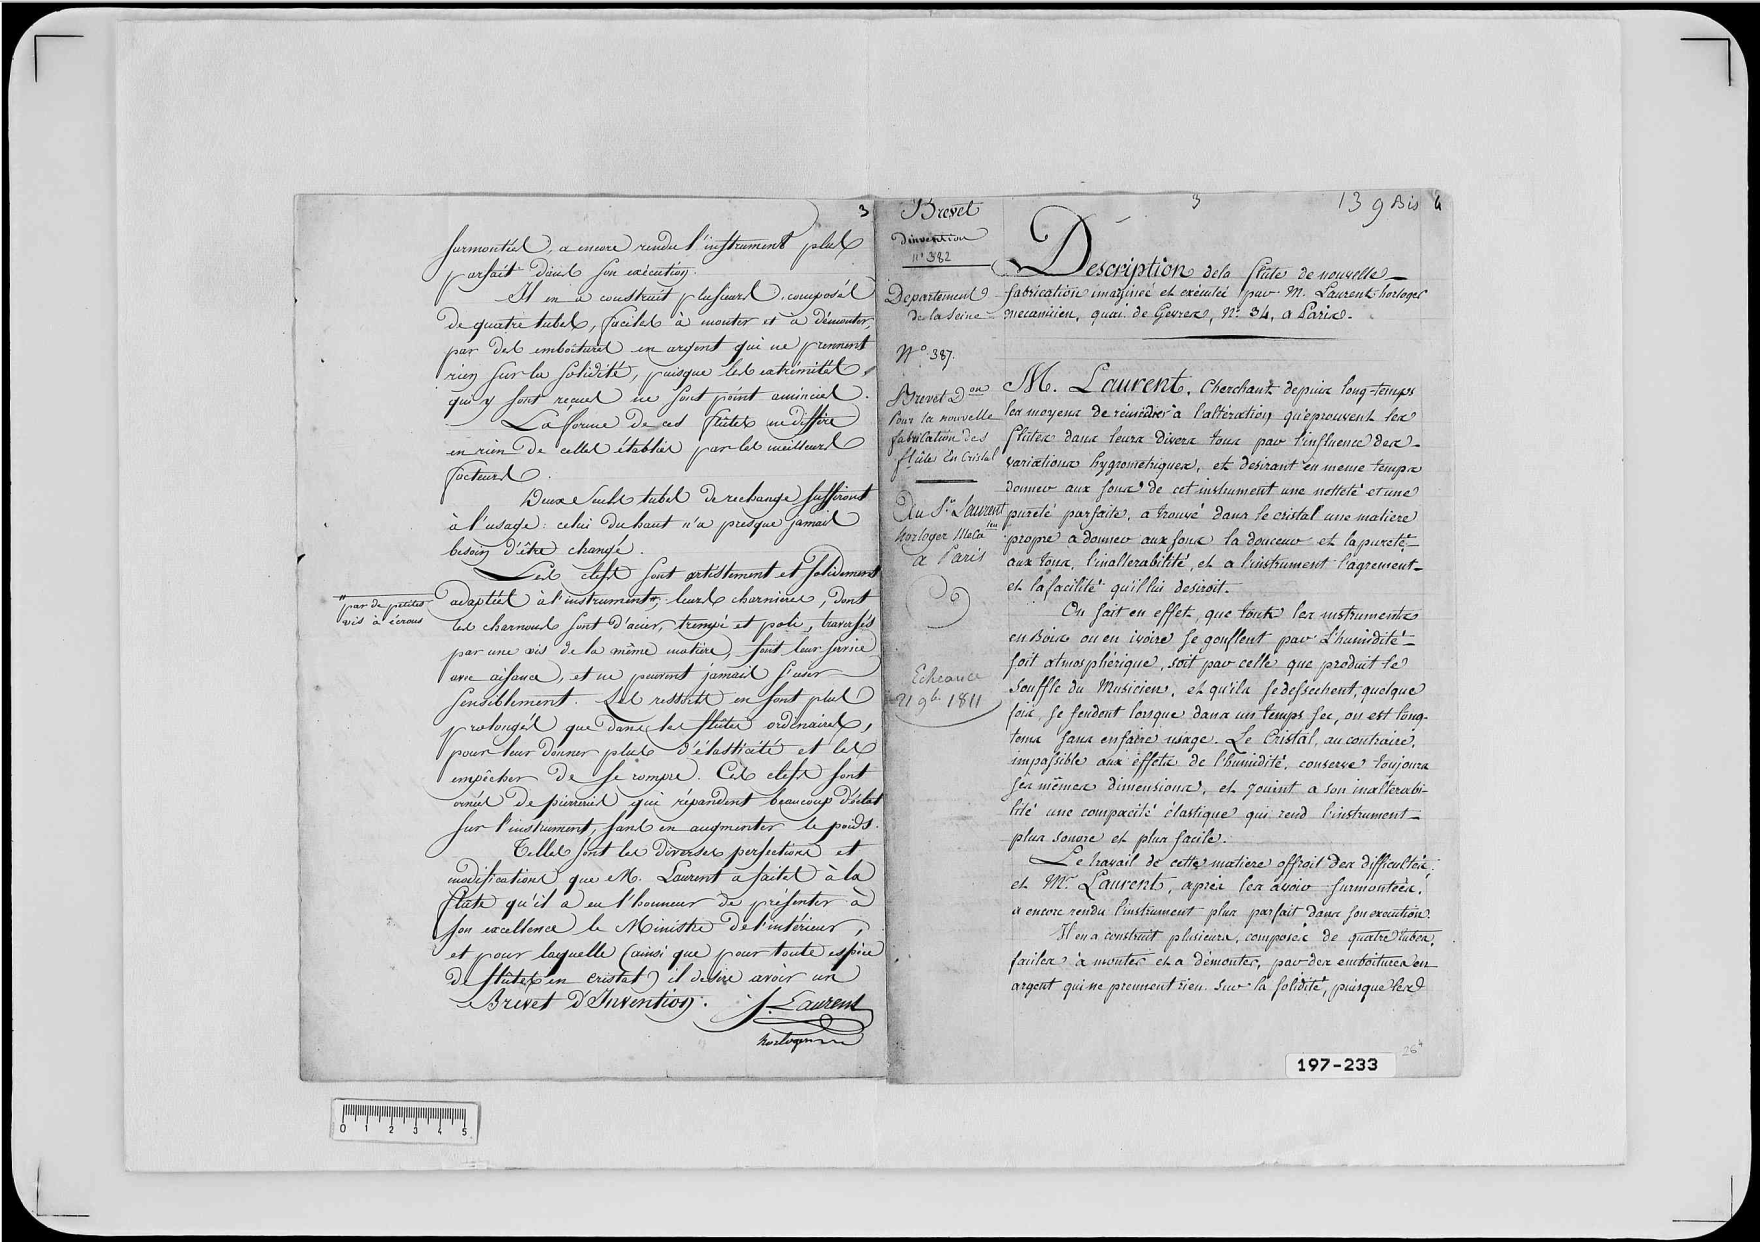 3
surmontées, a encore rendu l'instrument plus
parfait dans son exécution.
Il en a construit plusieurs, composés
de quatre tubes, faciles à monter et à démonter,
par des emboitures en argent qui ne prennent
rien sur la solidité, puisque les extrémités
qui y sont reçues ne sont point amincies.
La forme de ces flûtes ne diffère
en rien de celles établies par les meilleurs
facteurs.
Deux seuls tubes de rechange suffiront
à l'usage: celui du haut n'a presque jamais
besoin d'être changé.
Les clefs sont artistement et solidement
adaptées à l'instrument; leurs charnieres, dont
par de petites
vis à écrous
les charnons sont d'acier, trempé et poli, traversés
par une vis de la même matière, font leur service
avec aisance, et ne peuvent jamais s'user
sensiblement. Les ressorts en sont plus
prolongés que dans les flûtes ordinaires,
pour leur donner plus d'élasticité et les
empêcher de se rompre. Ces clefs sont
ornées de pierreries qui répandent beaucoup d'éclat
sur l'instrument, sans en augmenter le poids.
Telles sont les diverses perfections et
modifications que M. Laurent a faites à la
flûte qu'il a eu l'honneur de présenter à
son excellence le Ministre de l'intérieur,
et pour laquelle (ainsi que pour toute espèce
de flûtes en cristal) il desire avoir un
Brevet D'Invention.
Laurent
horloger
Brevet
d'invention
n° 382
Departement
de la Seine
N° 387.
Brevet D.on
Pour la nouvelle
fabrication des
flûtes En Cristal
Au Sr. Laurent
horloger Meca.ien
a Paris
Echeance
21 9bre 1811
3
139 Bis
4
Description de la flûte de nouvelle
fabrication imaginée et exécutée par M. Laurent horloger
mecanicien, quai de Gevres, N°. 34, a Paris.
M. Laurent, Cherchant depuis long-temps
les moyens de remédier a l'altération qu'éprouvent les
flûtes dans leurs divers tons par l'influence des
variations hygrometriques, et desirant en meme temps
donner aux sons de cet instrument une netteté et une
pureté parfaite, a trouvé dans le cristal une matiere
propre a donner aux sons la douceur et la pureté
aux tons, l'inalterabilité, et a l'instrument l'agrement
et la facilité qu'il lui desiroit.
On sait en effet, que tous les instruments
en Bois ou en ivoire se gonflent par L'humidité
soit atmosphérique, soit par celle que produit le
souffle du Musicien, et qu'ils se dessechent, quelque
fois, se fendent lorsque dans un temps sec, on est long-
tems sans en faire usage. Le Cristal, au contraire,
impassible aux effets de l'humidité, conserve toujours
ses mêmes dimensions, et joint a son inalterabi-
lité une compacité élastique qui rend l'instrument
plus sonore et plus facile.
Le travail de cette matiere offroit des difficultés;
et Mr. Laurent, après les avoir surmontées,
a encore rendu l'instrument plus parfait dans son execution.
Il en a construit plusieurs, composés de quatre tubes,
faciles à monter et a démonter, par des emboitures en
argent qui ne prennent rien sur la solidité, puisque les
197-233
0 1 2 3 4 5